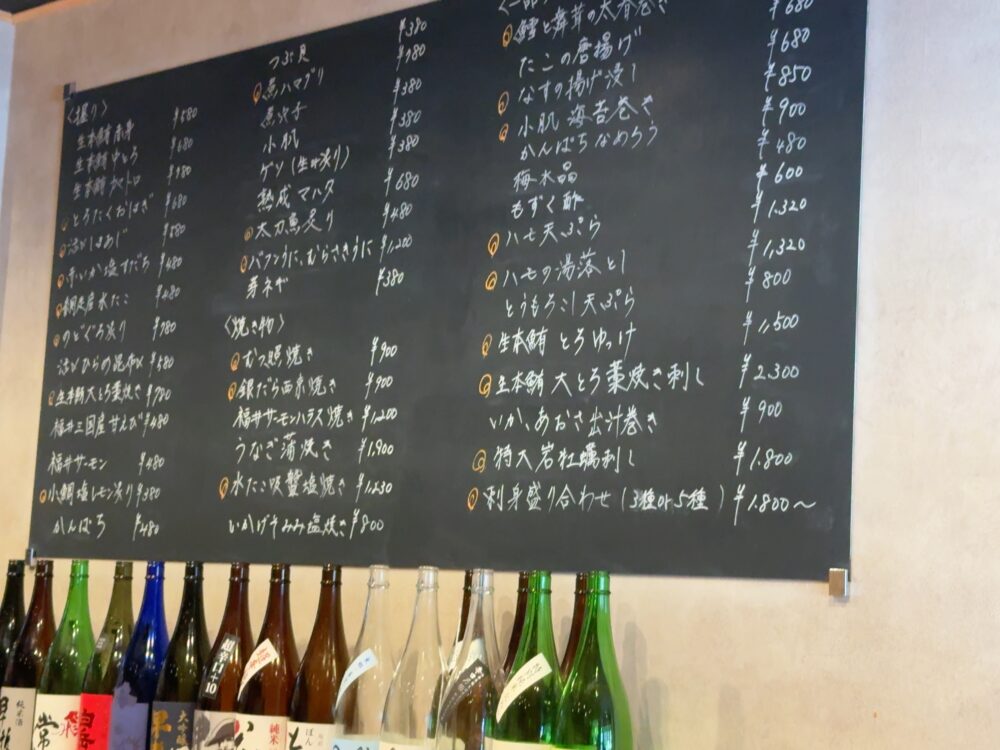 〈握り〉
生本鮪 赤身 ¥580
生本鮪 中とろ ¥680
生本鮪 大トロ ¥980
とろたくおはぎ ¥680
活〆しまあじ ¥580
赤いか塩すだち ¥480
網走産水たこ ¥480
のどぐろ炙り ¥780
活〆ひらめ昆布〆 ¥580
生本鮪大とろ藁焼き ¥980
福井三国産甘えび ¥480
福井サーモン ¥480
小鯛塩レモン炙り ¥380
かんぱち ¥480
つぶ貝 ¥380
煮ハマグリ ¥780
煮穴子 ¥380
小肌 ¥380
ゲソ(生or炙り) ¥380
熟成マハタ ¥680
太刀魚炙り ¥480
バフンうに、むらさきうに ¥1,200
芽ネギ ¥380
〈焼き物〉
むつ照焼き ¥900
銀だら西京焼き ¥900
福井サーモンハラス焼き ¥1,200
うなぎ蒲焼き ¥1,900
水たこ吸盤塩焼き ¥1,230
いかげそみみ塩焼き ¥800
鱈と舞茸の大春巻き ¥680
たこの唐揚げ ¥680
なすの揚げ浸し ¥850
小肌 海苔巻き ¥900
かんぱちなめろう ¥480
梅水晶 ¥600
もずく酢 ¥1,320
ハモ天ぷら ¥1,320
ハモの湯落とし ¥800
とうもろこし天ぷら ¥1,500
生本鮪 とろゆっけ ¥2,300
生本鮪 大とろ藁焼き刺し ¥900
いか、あおさ出汁巻き ¥1,800
特大岩牡蠣刺し ¥1,800〜
刺身盛り合わせ(3種or5種)
超辛口+10
純米酒
常
大吟醸
純米